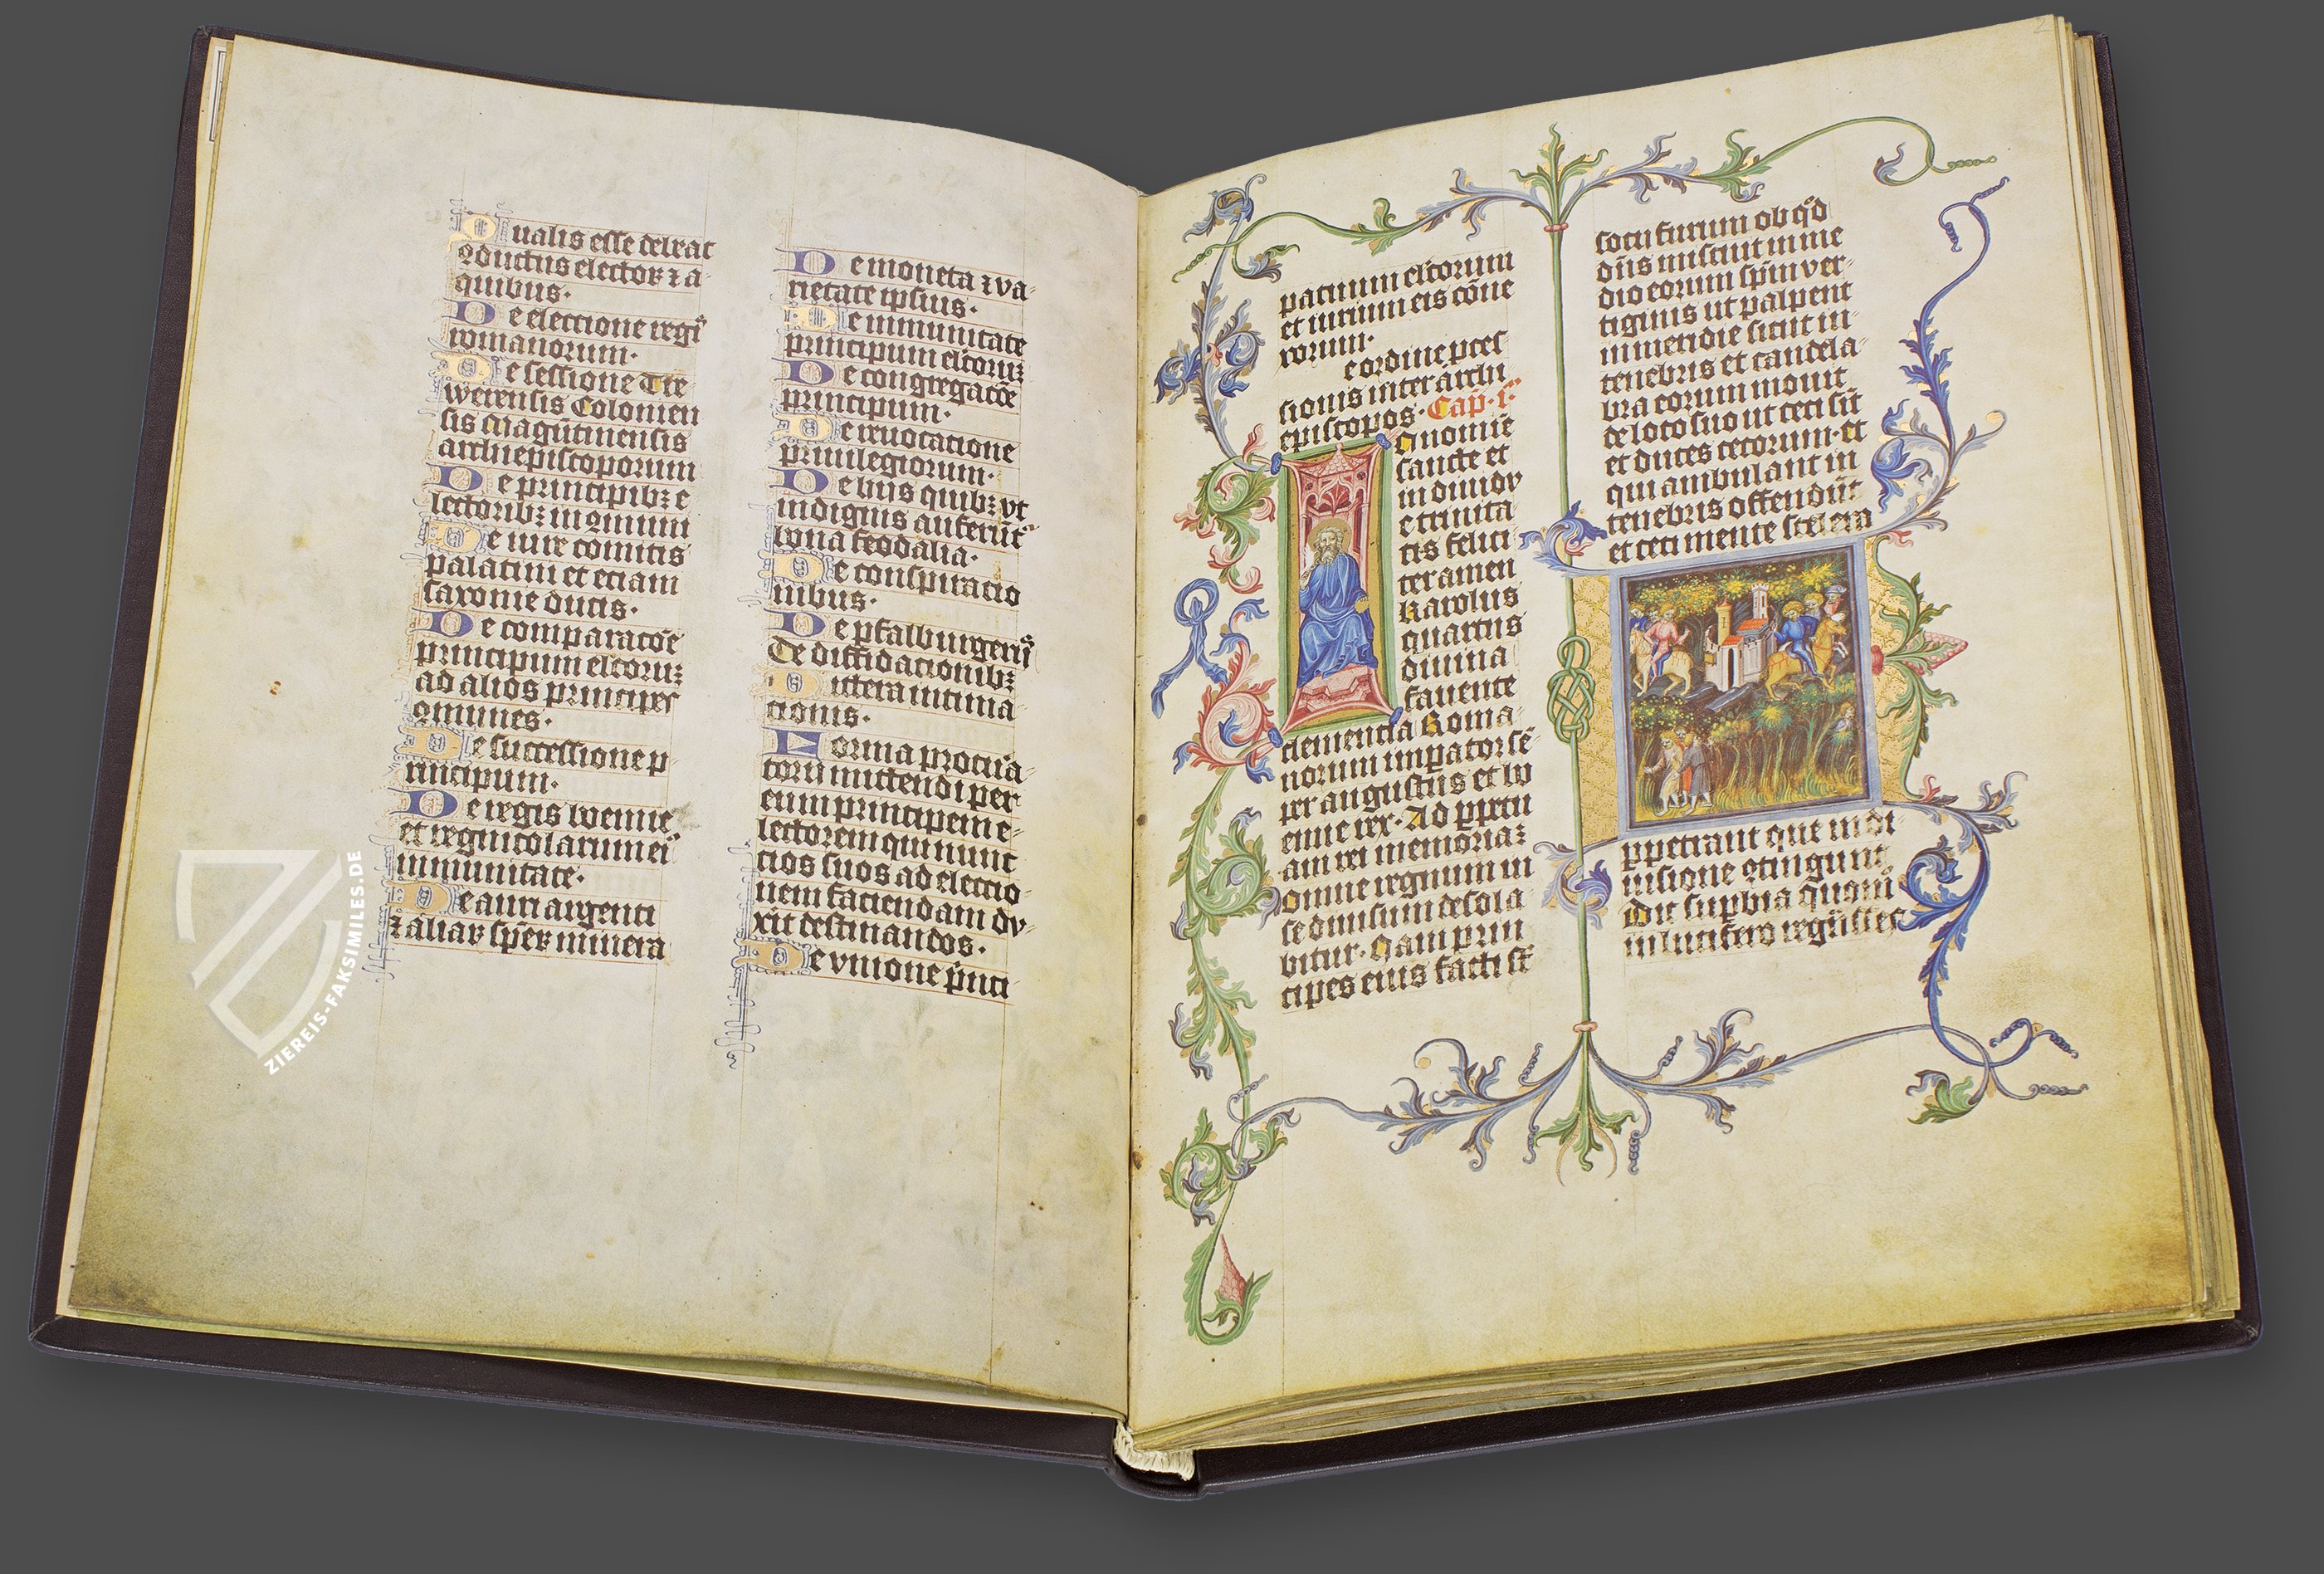 Qualis esse debeat
9ductus elector ꝛ a
quibus.
De eleccione regꝭ
romanorum.
De sessione Tre
werensis Colonien
sis Magūtinensis
archiepiscoporum
De principibꝫ e
lectoribꝫ in 9muni
De iure comitis
palatini et eciam
saxonie ducis.
De comparacōe
principum elc̄oruꝫ
ad alios principes
9munes.
De successione p
rincipum.
De regis boemie
et regnicolarum ei9
inmunitate.
De auri argenti
ꝛ aliarꝝ sperꝝ minera
De moneta ꝛ va-
rietate ipsius.
De inmunitate
principum elc̄oruꝫ
De congregacōe
principum.
De reuocacione
priuilegiorum.
De hiis quibꝫ vt
indignis auferūt̄
bona feodalia.
De conspiracio
nibus.
De pfalburgerijs
De diffidacionibꝫ
Littera intima-
cionis.
Forma procura-
torij mittendi per
eum principem e-
lectorem qui nunc
cios suos ad eleccio-
nem faciendam du-
xit destinandos.
De vnione p̄nci
patuum elc̄orum
et iurium eis cōne
xorum.
De ordine p̄ces
sionis inter archi
episcopos. Cap. i.
In nomine
sancte et
indiuidu
e trinita
tis felici
ter amen
Karolus
quartus
diuina
fauente
clemencia Roma
norum imperator sē
per augustus et bo
emie rex. Ad ꝑpetu
am rei memoriaꝫ
Omne regnum in
se diuisum desola
bitur. Nam prin
cipes eius facti sūt
socij furum ob qd̄
dn̄s miscuit in me
dio eorum spm̄ ver-
tiginis ut palpent
in meridie sicut in-
tenebris et candela-
bra eorum mouit
de loco suo ut ceci sīt
et duces cecorum. et
qui ambulant in
tenebris offendūt
et ceci mente scelera
ꝑpetrant que in di
uisione 9tingunt
Dic suꝑbia quom̄
in lucifero regn̄sses
ZIEREIS-FAKSIMILES.DE